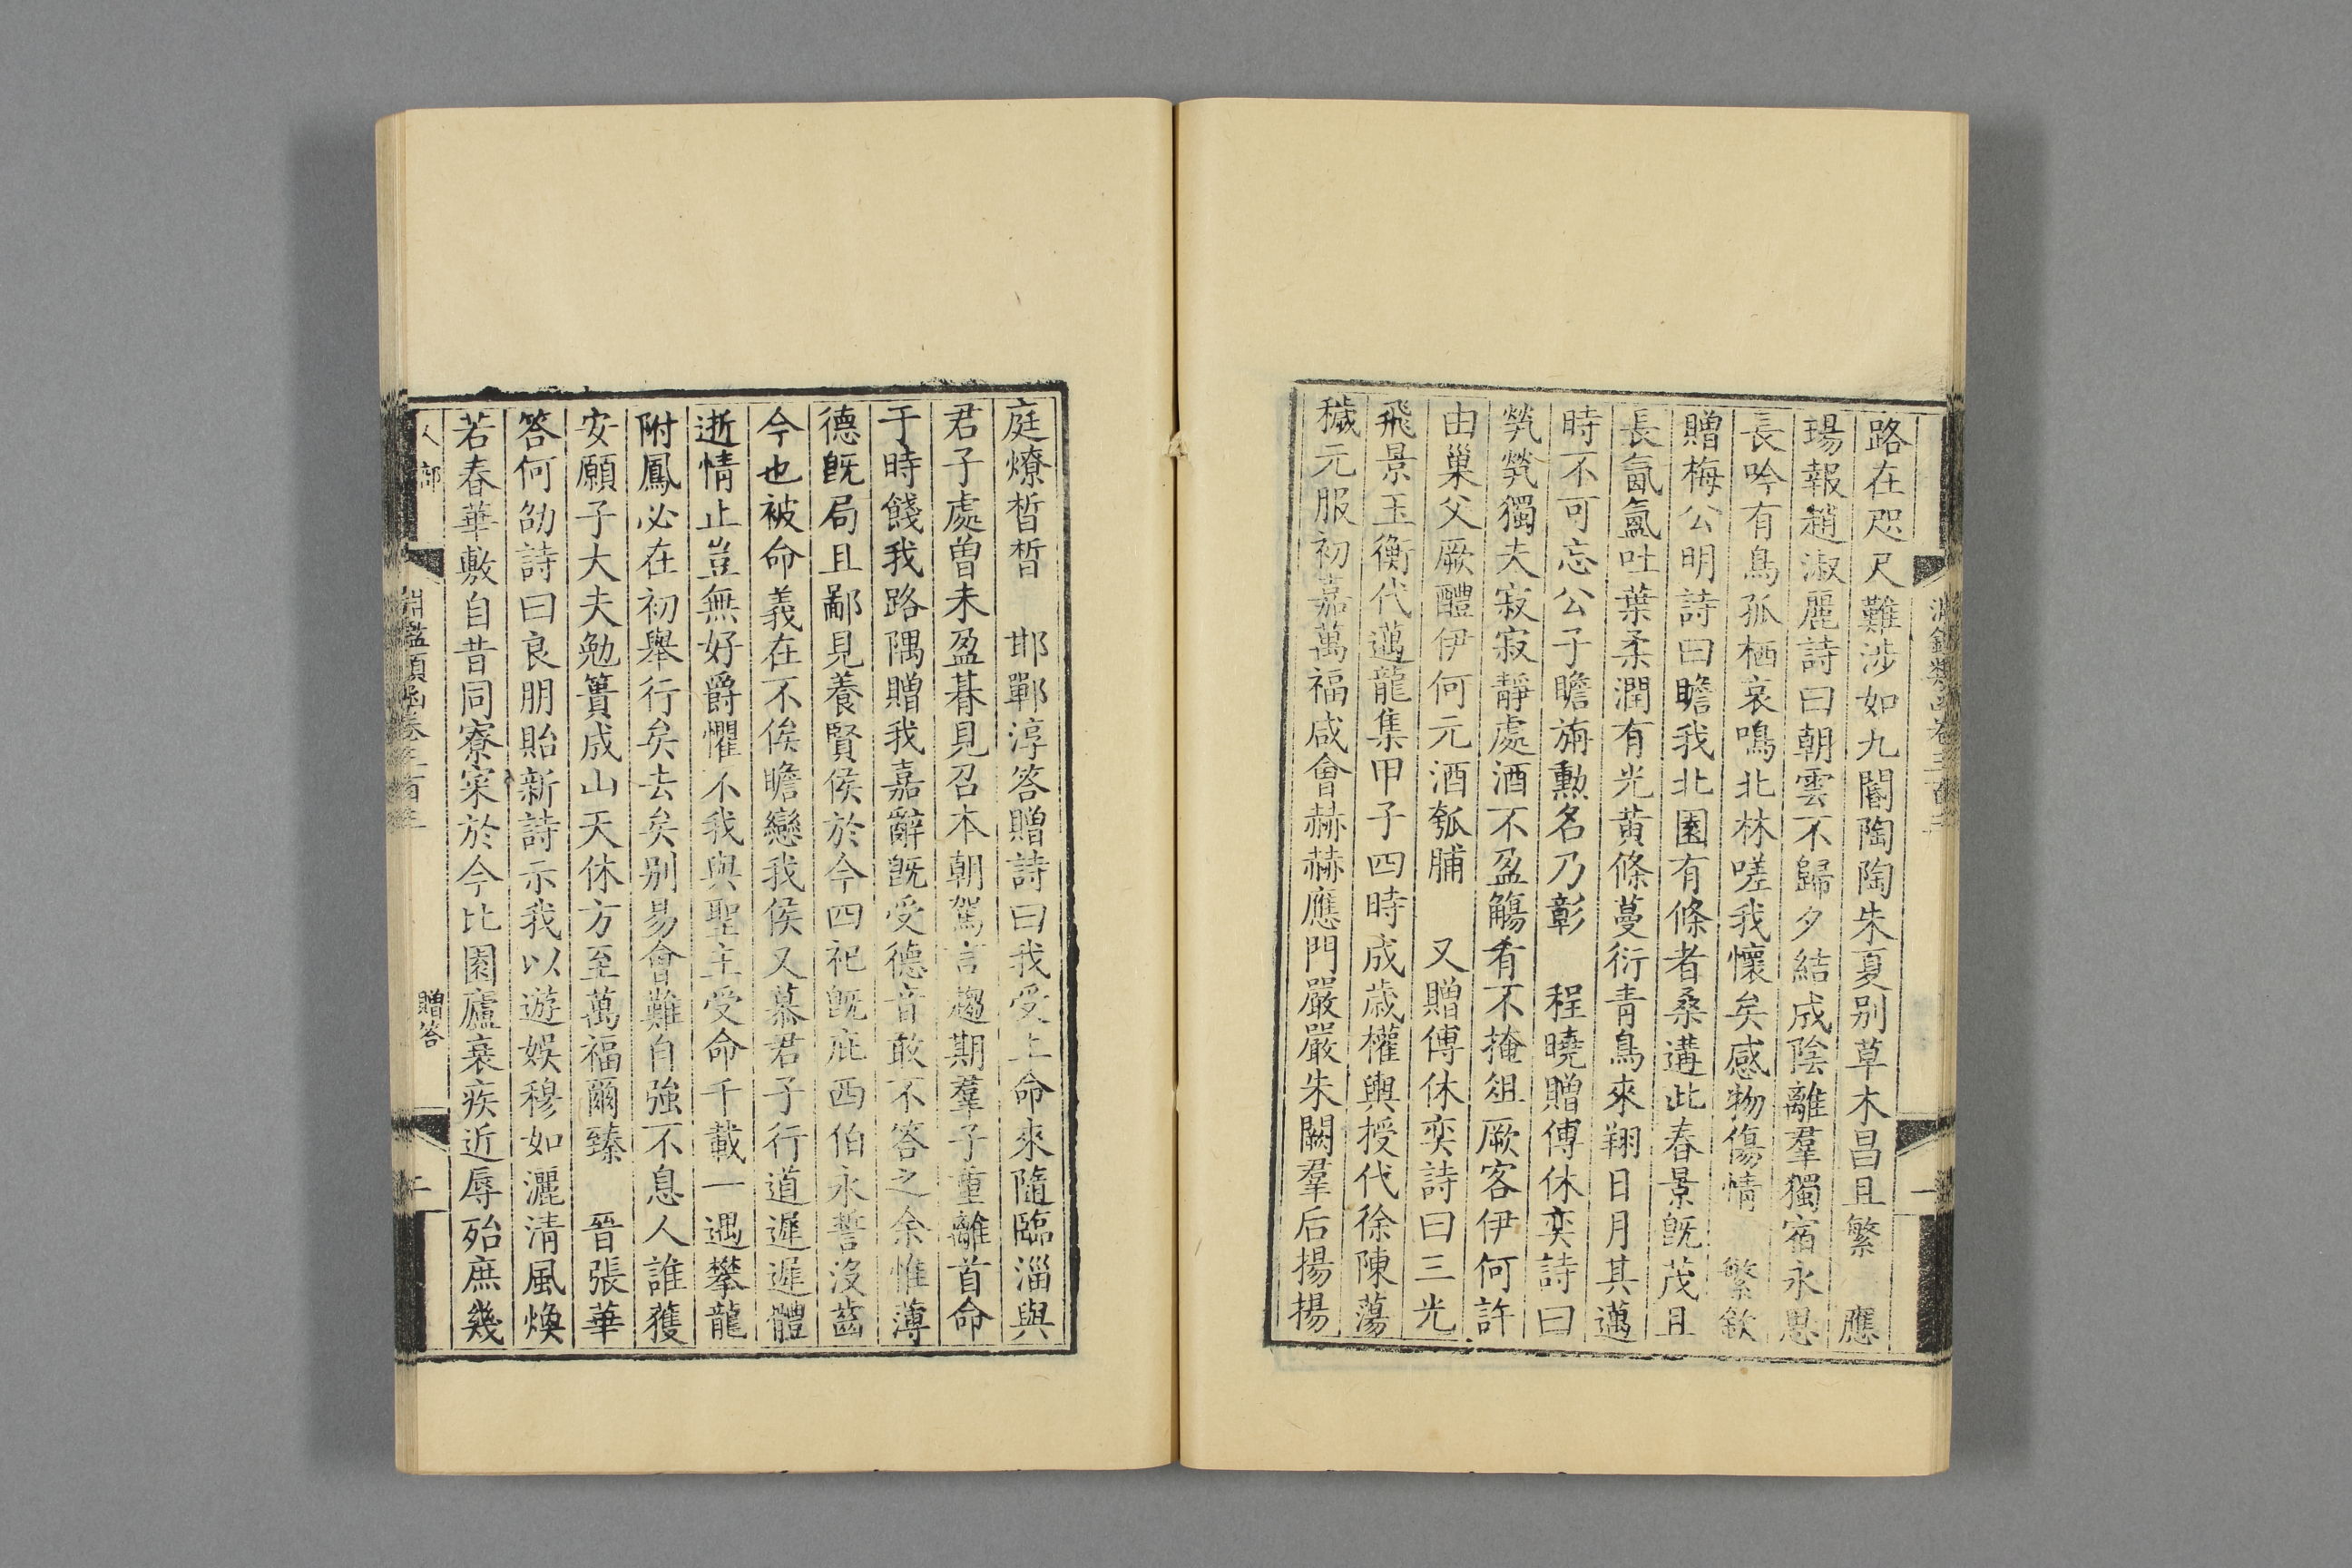 路在咫尺難涉如九關陶陶朱夏別草木昌且繁　應
瑒報趙淑麗詩曰朝雲不歸夕結成陰離羣獨宿永思
長吟有鳥孤栖哀鳴北林嗟我懷矣感物傷情　繁欽
贈梅公明詩曰瞻我北園有條者桑遘此春景既茂且
長氤氳吐葉柔潤有光黃條蔓衍青鳥來翔日月其邁
時不可忘公子瞻旃勳名乃彰　程曉贈傅休奕詩曰
煢煢獨夫寂寂靜處酒不盈觴肴不掩俎厥客伊何許
由巢父厥醴伊何元酒瓠脯　又贈傅休奕詩曰三光
飛景玉衡代邁龍集甲子四時成歲權輿授代徐陳蕩
穢元服初嘉萬福咸會赫赫應門嚴嚴朱闕羣后揚揚
庭燎晢晢　邯鄲淳答贈詩曰我受上命來隨臨淄與
君子處曾未盈朞見召本朝駕言趨期羣子重離首命
于時餞我路隅贈我嘉辭既受德音敢不答之余惟薄
德既局且鄙見養賢侯於今四祀既庇西伯永誓沒齒
今也被命義在不俟瞻戀我侯又慕君子行道遲遲體
逝情止豈無好爵懼不我與聖主受命千載一遇攀龍
附鳳必在初舉行矣去矣別易會難自強不息人誰獲
安願子大夫勉簣成山天休方至萬福爾臻　晉張華
答何劭詩曰良朋貽新詩示我以遊娛穆如灑清風煥
若春華敷自昔同寮寀於今比園廬衰疾近辱殆庶幾
人部
淵鑑類函卷三百
贈答
二